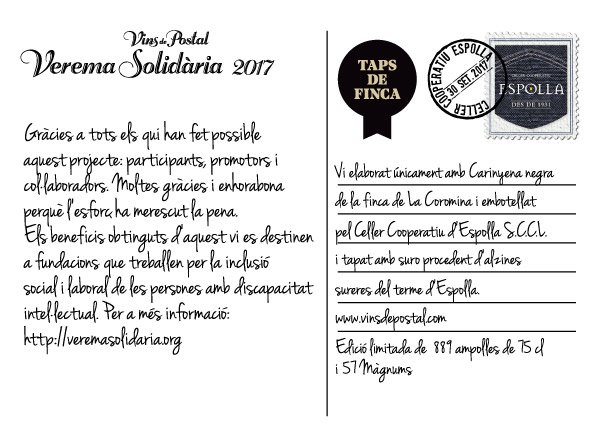 Vins de Postal
Verema Solidària 2017
Gràcies a tots els qui han fet possible
aquest projecte: participants, promotors i
col·laboradors. Moltes gràcies i enhorabona
perquè l'esforç ha merescut la pena.
Els beneficis obtinguts d'aquest vi es destinen
a fundacions que treballen per la inclusió
social i laboral de les persones amb discapacitat
intel·lectual. Per a més informació:
http://veremasolidaria.org
TAPS
DE
FINCA
CELLER COOPERATIU ESPOLLA
30 SET. 2017
CELLER COOPERATIU
ESPOLLA
DES DE 1931
Vi elaborat únicament amb Carinyena negra
de la finca de La Coromina i embotellat
pel Celler Cooperatiu d'Espolla S.C.C.L.
i tapat amb suro procedent d'alzines
sureres del terme d'Espolla.
www.vinsdepostal.com
Edició limitada de 889 ampolles de 75 cl
i 57 Màgnums